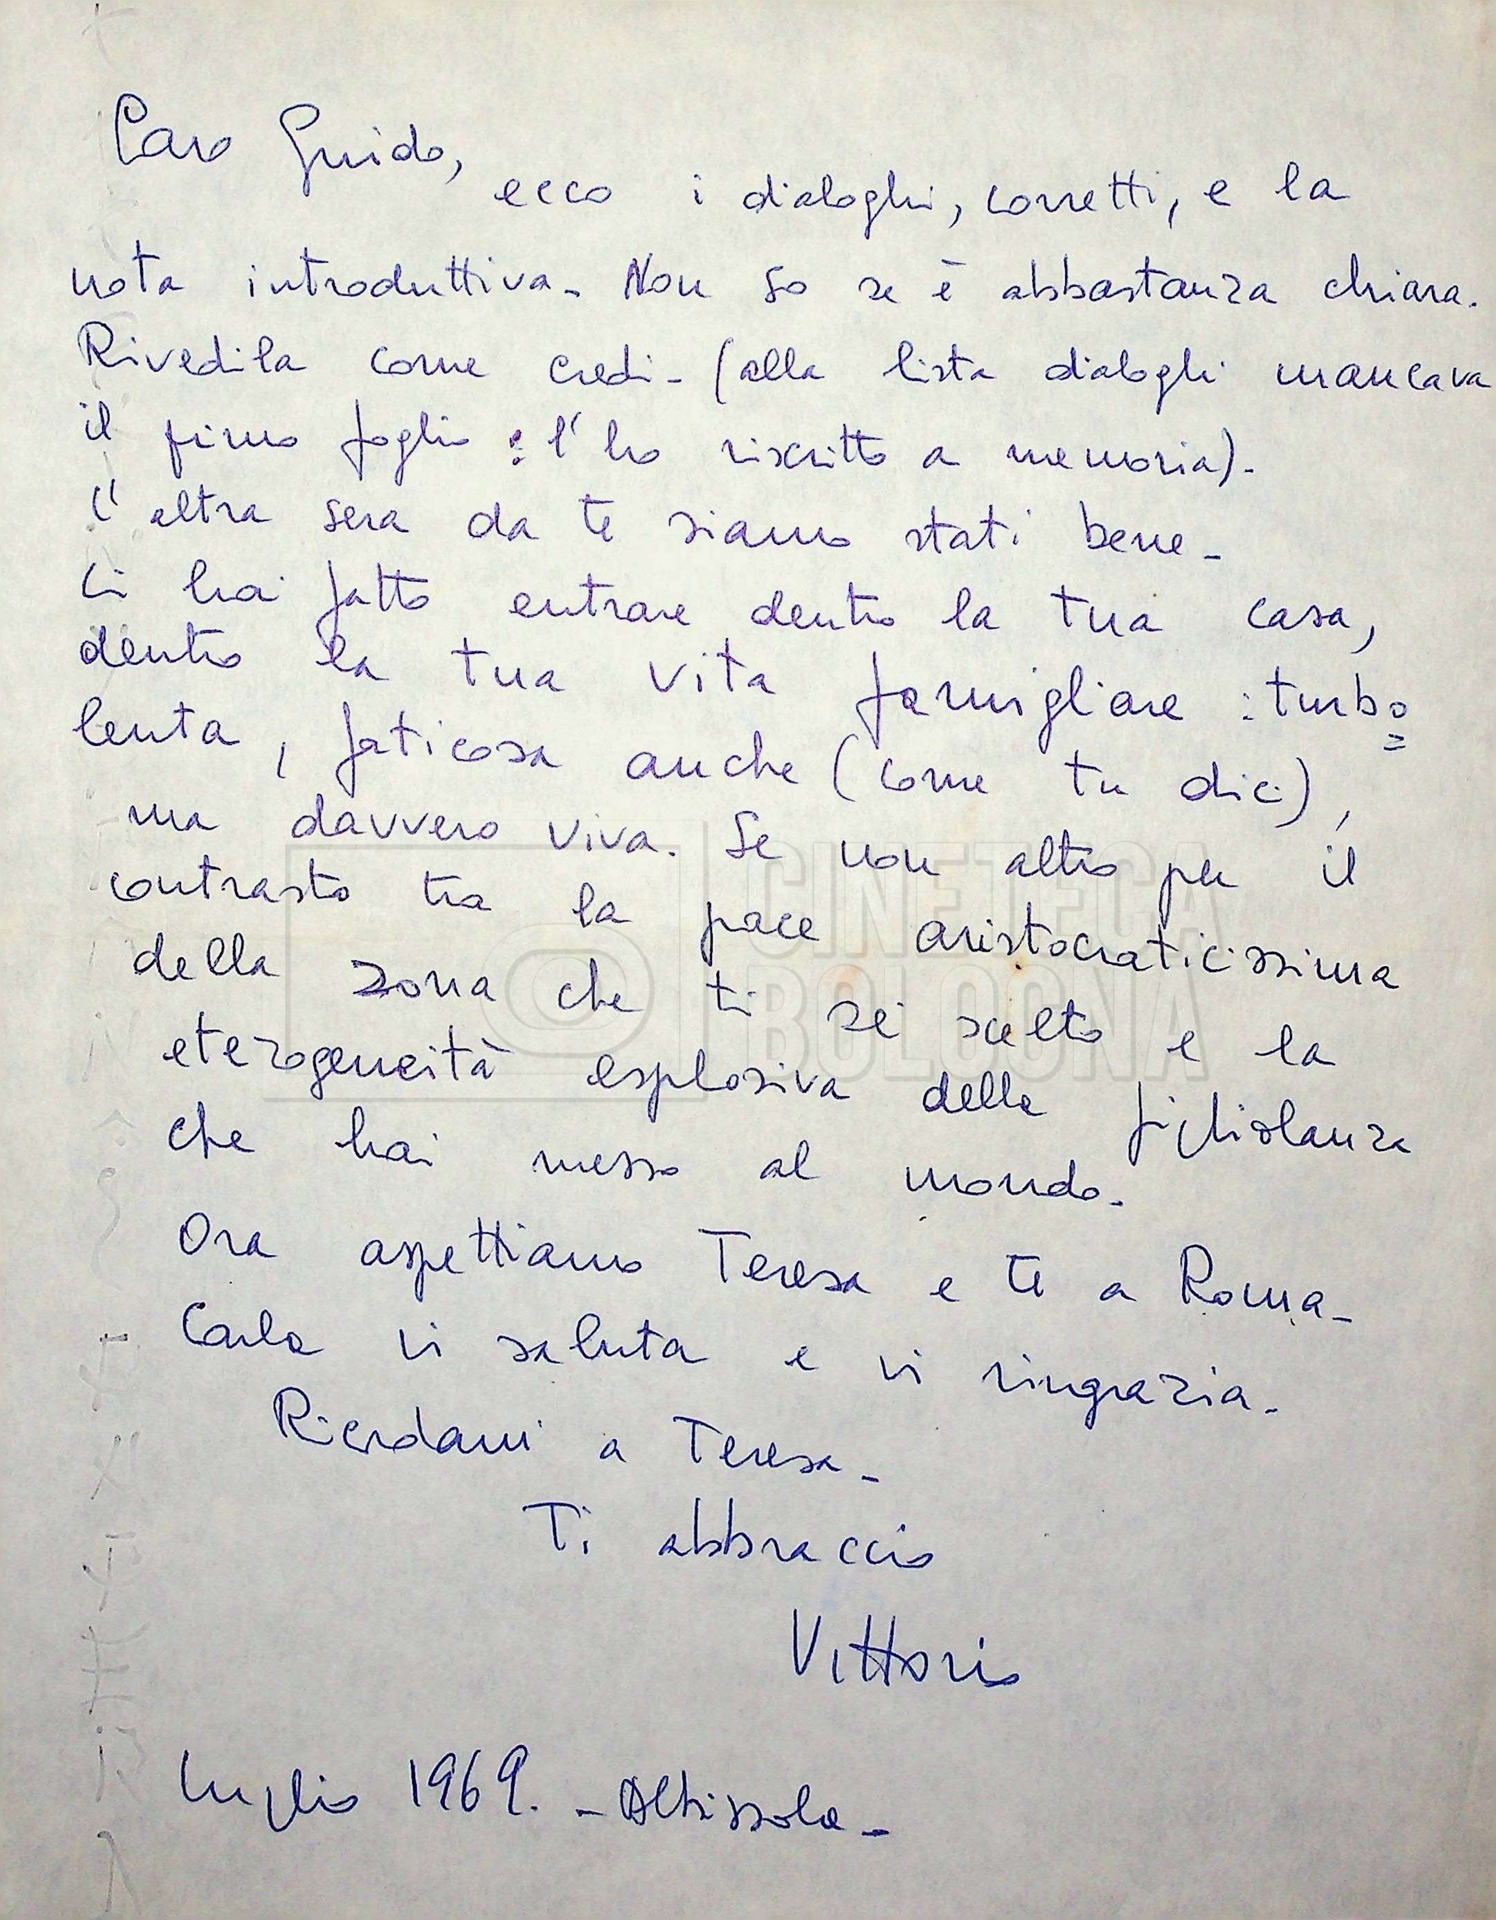 Caro Guido,
ecco i dialoghi, corretti, e la
nota introduttiva. Non so se è abbastanza chiara.
Rivedila come credi. (alla lista dialoghi mancava
il primo foglio: l'ho riscritto a memoria).
L'altra sera da te siamo stati bene.
Ci hai fatto entrare dentro la tua casa,
dentro la tua vita famigliare: turbo=
lenta, faticosa anche (come tu dici),
ma davvero viva. Se non altro per il
contrasto tra la pace aristocraticissima
della zona che ti sei scelto e la
eterogeneità esplosiva della figliolanza
che hai messo al mondo.
Ora aspettiamo Teresa e te a Roma.
Carla vi saluta e vi ringrazia.
Ricordami a Teresa.
Ti abbraccio
Vittorio
Luglio 1969. - Albissola -
CINETECA
BOLOGNA